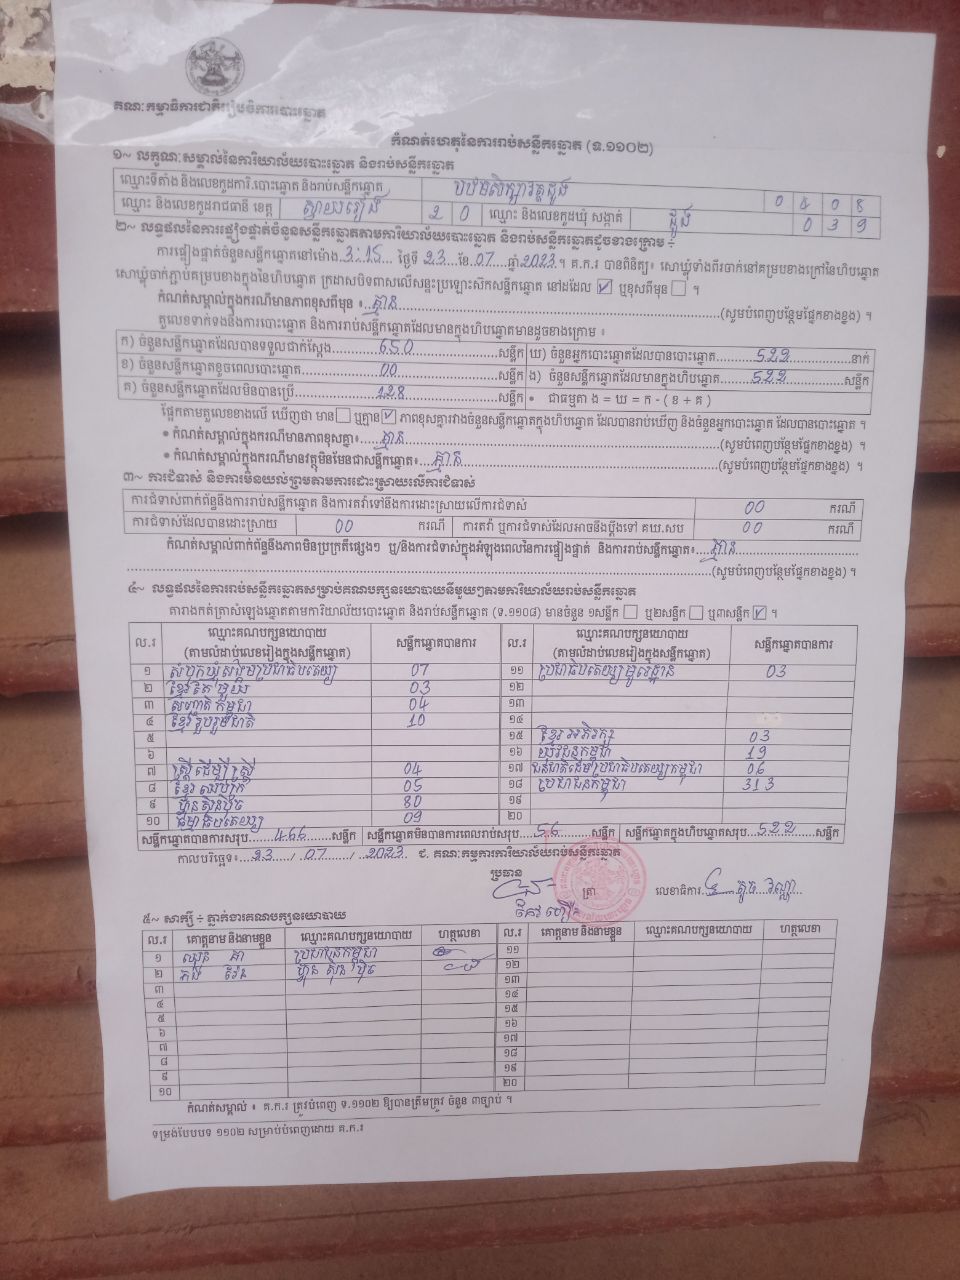 គណៈកម្មាធិការជាតិរៀបចំការបោះឆ្នោត
កំណត់ហេតុនៃការរាប់សន្លឹកឆ្នោត (ទ.១១០២)
១~ លក្ខណៈសម្គាល់នៃការិយាល័យបោះឆ្នោត និងរាប់សន្លឹកឆ្នោត
ឈ្មោះទីតាំង និងលេខកូដការិ.បោះឆ្នោត និងរាប់សន្លឹកឆ្នោត បឋមសិក្សាវត្តដូង
ឈ្មោះ និងលេខកូដរាជធានី ខេត្ត ស្វាយរៀង 2 0 ឈ្មោះ និងលេខកូដឃុំ សង្កាត់ ដូង 0 3 9
២~ លទ្ធផលនៃការផ្ទៀងផ្ទាត់ចំនួនសន្លឹកឆ្នោតតាមការិយាល័យបោះឆ្នោត និងរាប់សន្លឹកឆ្នោតដូចខាងក្រោម ÷
ការផ្ទៀងផ្ទាត់ចំនួនសន្លឹកឆ្នោតនៅម៉ោង 3:15 ថ្ងៃទី 23 ខែ 07 ឆ្នាំ 2023 ។ គ.ក.រ បានពិនិត្យ៖ សោឃ្លុំទាំងពីរចាក់នៅគម្របខាងក្រៅនៃហិបឆ្នោត
សោឃ្លុំចាក់ភ្ជាប់គម្របខាងក្នុងនៃហិបឆ្នោត ក្រដាសបិទពាសលើសន្ទះប្រឡោះស៊កសន្លឹកឆ្នោត នៅដដែល ☑ ឬខុសពីមុន ☐ ។
កំណត់សម្គាល់ក្នុងករណីមានភាពខុសពីមុន ៖ គ្មាន (សូមបំពេញបន្ថែមផ្នែកខាងខ្នង) ។
តួលេខទាក់ទងនឹងការបោះឆ្នោត និងការរាប់សន្លឹកឆ្នោតដែលមានក្នុងហិបឆ្នោតមានដូចខាងក្រោម ៖
ក) ចំនួនសន្លឹកឆ្នោតដែលបានទទួលជាក់ស្តែង 650 សន្លឹក ឃ) ចំនួនអ្នកបោះឆ្នោតដែលបានបោះឆ្នោត 522 នាក់
ខ) ចំនួនសន្លឹកឆ្នោតខូចពេលបោះឆ្នោត 00 សន្លឹក ង) ចំនួនសន្លឹកឆ្នោតដែលមានក្នុងហិបឆ្នោត 522 សន្លឹក
គ) ចំនួនសន្លឹកឆ្នោតដែលមិនបានប្រើ 128 សន្លឹក • ជាធម្មតា ង = ឃ = ក - ( ខ + គ )
ផ្អែកតាមតួលេខខាងលើ ឃើញថា មាន ☐ ឬគ្មាន ☑ ភាពខុសគ្នារវាងចំនួនសន្លឹកឆ្នោតក្នុងហិបឆ្នោត ដែលបានរាប់ឃើញ និងចំនួនអ្នកបោះឆ្នោត ដែលបានបោះឆ្នោត ។
• កំណត់សម្គាល់ក្នុងករណីមានភាពខុសគ្នា៖ គ្មាន (សូមបំពេញបន្ថែមផ្នែកខាងខ្នង) ។
• កំណត់សម្គាល់ក្នុងករណីមានវត្ថុមិនមែនជាសន្លឹកឆ្នោត៖ គ្មាន (សូមបំពេញបន្ថែមផ្នែកខាងខ្នង) ។
៣~ ការជំទាស់ និងការមិនយល់ព្រមតាមការដោះស្រាយលើការជំទាស់
ការជំទាស់ពាក់ព័ន្ធនឹងការរាប់សន្លឹកឆ្នោត និងការតវ៉ាទៅនឹងការដោះស្រាយលើការជំទាស់ 00 ករណី
ការជំទាស់ដែលបានដោះស្រាយ 00 ករណី ការតវ៉ា ឬការជំទាស់ដែលអាចនឹងប្តឹងទៅ គឃ.សប 00 ករណី
កំណត់សម្គាល់ពាក់ព័ន្ធនឹងភាពមិនប្រក្រតីផ្សេងៗ ឬ/និងការជំទាស់ក្នុងអំឡុងពេលនៃការផ្ទៀងផ្ទាត់ និងការរាប់សន្លឹកឆ្នោត៖ គ្មាន
(សូមបំពេញបន្ថែមផ្នែកខាងខ្នង) ។
៤~ លទ្ធផលនៃការរាប់សន្លឹកឆ្នោតសម្រាប់គណបក្សនយោបាយនីមួយៗតាមការិយាល័យរាប់សន្លឹកឆ្នោត
តារាងកត់ត្រាសំឡេងឆ្នោតតាមការិយាល័យបោះឆ្នោត និងរាប់សន្លឹកឆ្នោត (ទ.១១០៨) មានចំនួន ១សន្លឹក ☐ ឬ២សន្លឹក ☐ ឬ៣សន្លឹក ☑ ។
ល.រ ឈ្មោះគណបក្សនយោបាយ (តាមលំដាប់លេខរៀងក្នុងសន្លឹកឆ្នោត) សន្លឹកឆ្នោតបានការ ល.រ ឈ្មោះគណបក្សនយោបាយ (តាមលំដាប់លេខរៀងក្នុងសន្លឹកឆ្នោត) សន្លឹកឆ្នោតបានការ
១ សំបុកឃ្មុំសង្គមប្រជាធិបតេយ្យ 07 ១១ ប្រជាធិបតេយ្យមូលដ្ឋាន 03
២ ខ្មែរតែមួយ 03 ១២
៣ សញ្ជាតិកម្ពុជា 04 ១៣
៤ ខ្មែររួបរួមជាតិ 10 ១៤
៥ ១៥ ខ្មែរអភិរក្ស 03
៦ ១៦ យុវជនកម្ពុជា 19
៧ ស្ត្រីដើម្បីស្ត្រី 04 ១៧ ជនជាតិដើមប្រជាធិបតេយ្យកម្ពុជា 06
៨ ខ្មែរឈប់ក្រ 05 ១៨ ប្រជាជនកម្ពុជា 313
៩ ហ៊្វុនស៊ិនប៉ិច 80 ១៩
១០ ធម្មាធិបតេយ្យ 09 ២០
សន្លឹកឆ្នោតបានការសរុប 466 សន្លឹក សន្លឹកឆ្នោតមិនបានការពេលរាប់សរុប 56 សន្លឹក សន្លឹកឆ្នោតក្នុងហិបឆ្នោតសរុប 522 សន្លឹក
កាលបរិច្ឆេទ៖ 23 / 07 / 2023 ជ. គណៈកម្មការការិយាល័យរាប់សន្លឹកឆ្នោត
ប្រធាន
ត្រា លេខាធិការ
៥~ សាក្សី ÷ ភ្នាក់ងារគណបក្សនយោបាយ
ល.រ គោត្តនាម និងនាមខ្លួន ឈ្មោះគណបក្សនយោបាយ ហត្ថលេខា ល.រ គោត្តនាម និងនាមខ្លួន ឈ្មោះគណបក្សនយោបាយ ហត្ថលេខា
១ ប្រជាជនកម្ពុជា ១១
២ ហ៊្វុនស៊ិនប៉ិច ១២
៣ ១៣
៤ ១៤
៥ ១៥
៦ ១៦
៧ ១៧
៨ ១៨
៩ ១៩
១០ ២០
កំណត់សម្គាល់ ៖ គ.ក.រ ត្រូវបំពេញ ទ.១១០២ ឱ្យបានត្រឹមត្រូវ ចំនួន ៣ច្បាប់ ។
ទម្រង់បែបបទ ១១០២ សម្រាប់បំពេញដោយ គ.ក.រ